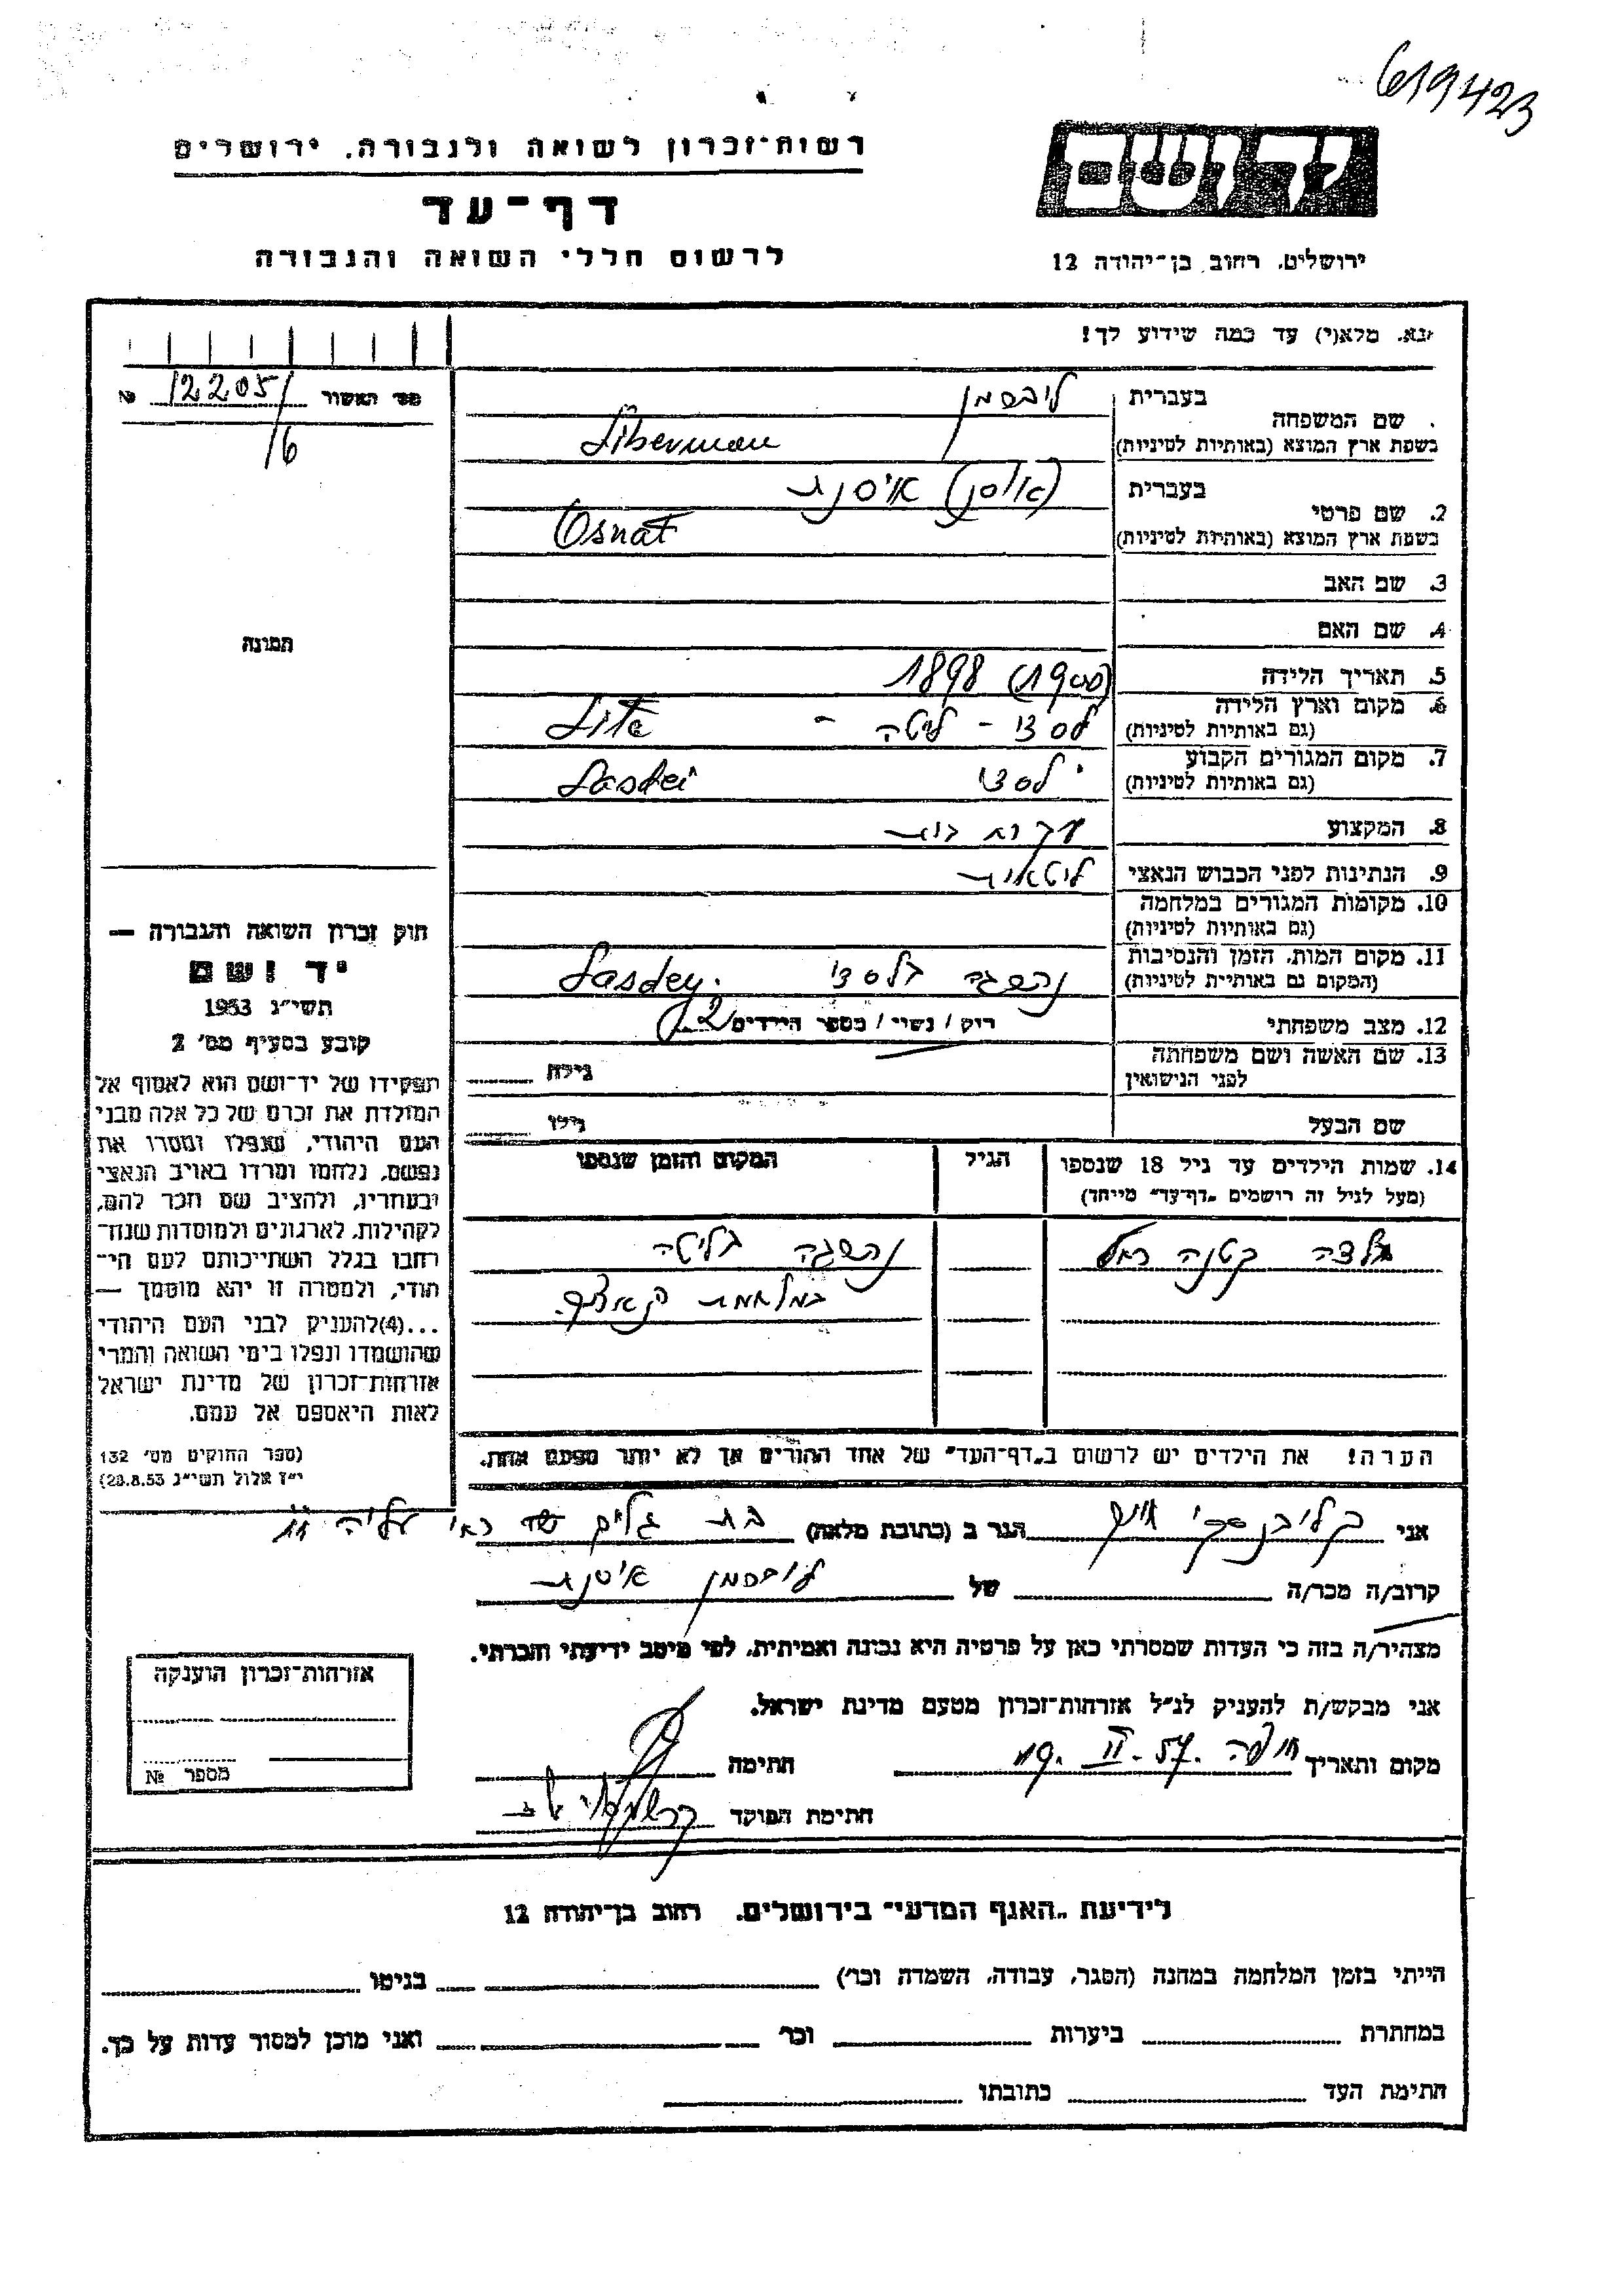 619423
רשות-זכרון לשואה ולגבורה. ירושלים
דף-עד
לרשום חללי השואה והגבורה
ירושלים. רחוב בן-יהודה 12
נא. מלא(י) עד כמה שידוע לך!
מס׳ האשור 12205/ №
16
תמונה
שם המשפחה
בעברית ליברמן
בשפת ארץ המוצא (באותיות לטיניות) Liberman
2. שם פרטי
בעברית אוסנת
בשפת ארץ המוצא (באותיות לטיניות) Osnat
3. שם האב
4. שם האם
5. תאריך הלידה (1900) 1898
6. מקום וארץ הלידה
(גם באותיות לטיניות) לסדי - ליטה - Lita
7. מקום המגורים הקבוע
(גם באותיות לטיניות) לסדי Lasdei
8. המקצוע עקרת בית
9. הנתינות לפני הכבוש הנאצי ליטאית
10. מקומות המגורים במלחמה
(גם באותיות לטיניות)
11. מקום המות. הזמן והנסיבות
(המקום גם באותיות לטיניות) נהרגה בלסדי Lasdey.
12. מצב משפחתי רוק / נשוי / מספר הילדים 2
13. שם האשה ושם משפחתה
לפני הנישואין גילה
שם הבעל גילו
14. שמות הילדים עד גיל 18 שנספו
(מעל לגיל זה רושמים „דף-עד" מייחד)
הגיל
המקום והזמן שנספו
ילדה קטנה רחל נהרגה בליטה
במלחמת הנאצים.
הערה! את הילדים יש לרשום ב„דף-העד" של אחד ההורים אך לא יותר מפעם אחת.
חוק זכרון השואה והגבורה —
יד ושם
תשי״ג 1953
קובע בסעיף מס׳ 2
תפקידו של יד-ושם הוא לאסוף אל
המולדת את זכרם של כל אלה מבני
העם היהודי, שנפלו ומסרו את
נפשם, נלחמו ומרדו באויב הנאצי
ובעוזריו, ולהציב שם וזכר להם,
לקהילות, לארגונים ולמוסדות שנח-
רחבו בגלל השתייכותם לעם הי-
הודי, ולמטרה זו יהא מוסמך —
...(4)להעניק לבני העם היהודי
שהושמדו ונפלו בימי השואה והמרי
אזרחות-זכרון של מדינת ישראל
לאות היאספם אל עמם.
(ספר החוקים מס׳ 132
י״ז אלול תשי״ג 28.8.53)
אני הגר ב (כתובת מלאה) בת גלים שד׳ עליה 11
קרוב/ה מכר/ה של ליברמן אוסנת
מצהיר/ה בזה כי העדות שמסרתי כאן על פרטיה היא נכונה ואמיתית, לפי מיטב ידיעתי והכרתי.
אני מבקש/ת להעניק לנ״ל אזרחות-זכרון מטעם מדינת ישראל.
מקום ותאריך חיפה 19. II. 57. חתימה
חתימת הפוקד
אזרחות-זכרון הוענקה
מספר №
לידיעת „האגף המדעי" בירושלים. רחוב בן-יהודה 12
הייתי בזמן המלחמה במחנה (הסגר, עבודה, השמדה וכו׳) בגיטו
במחתרת ביערות וכו׳ ואני מוכן למסור עדות על כך.
חתימת העד כתובתו